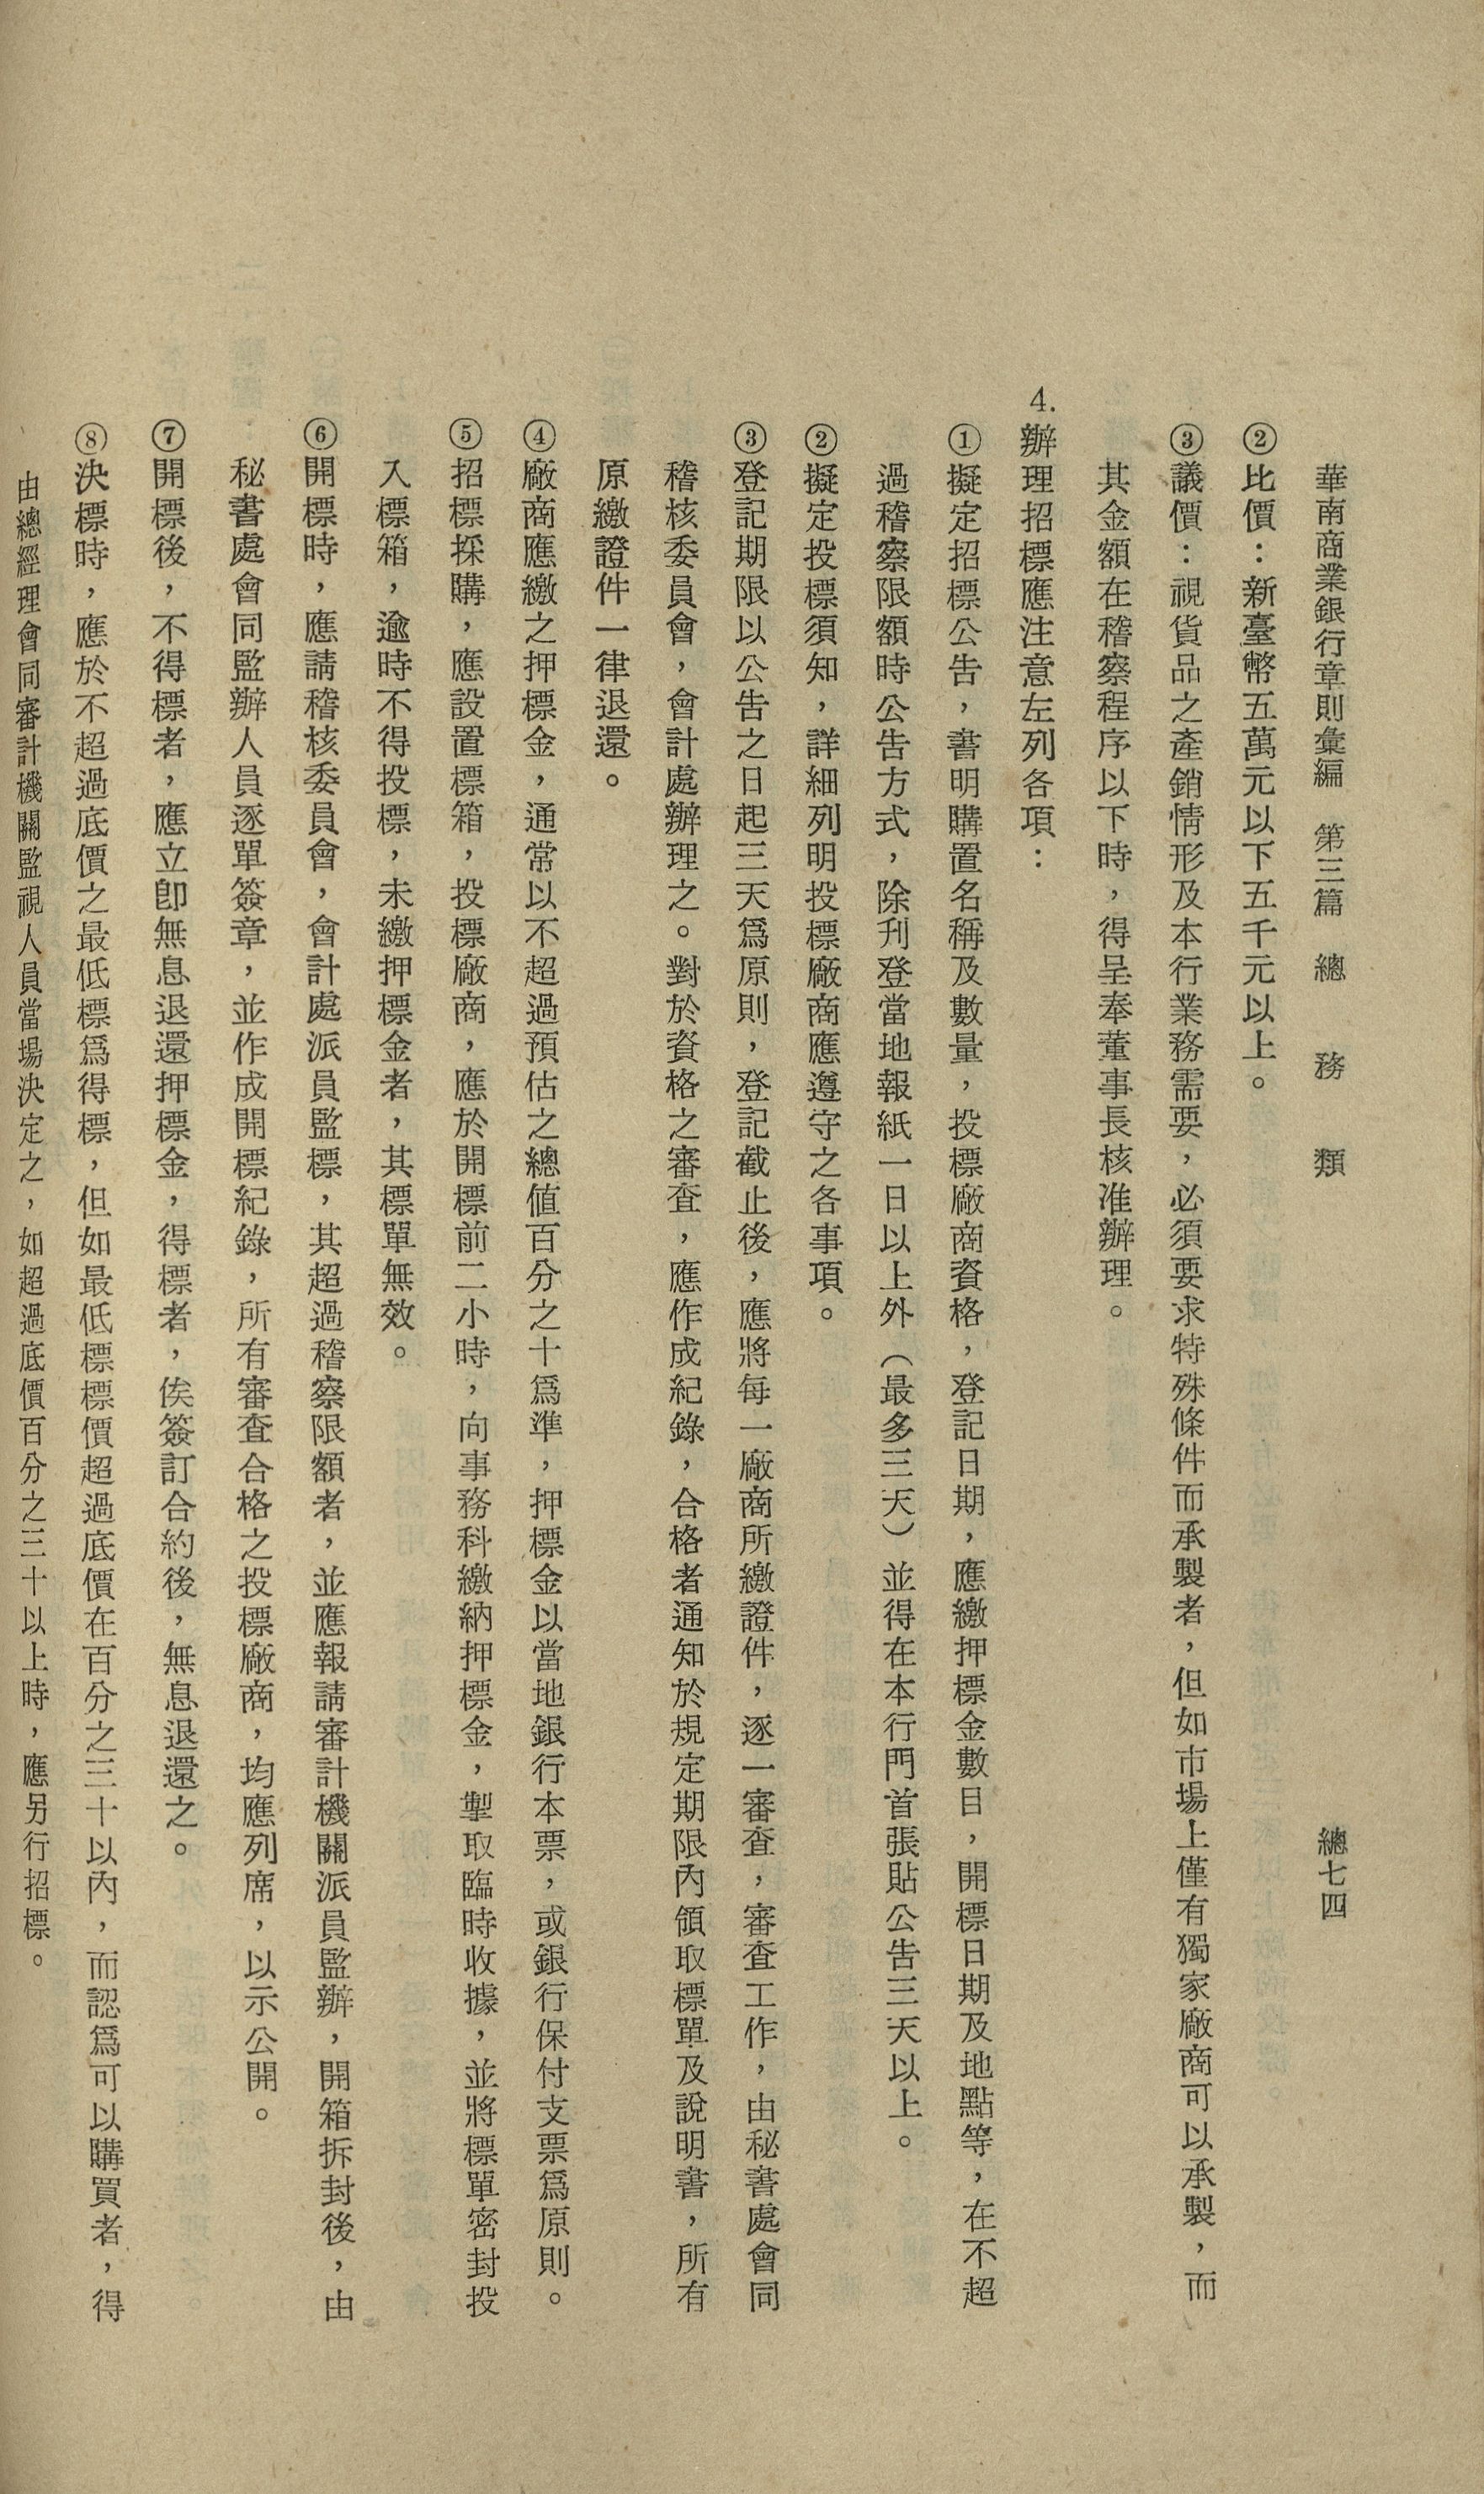 華南商業銀行章則彙編　第三篇　總　務　類　總七四
②比價：新臺幣五萬元以下五千元以上。
③議價：視貨品之產銷情形及本行業務需要，必須要求特殊條件而承製者，但如市場上僅有獨家廠商可以承製，而
其金額在稽察程序以下時，得呈奉董事長核准辦理。
4.辦理招標應注意左列各項：
①擬定招標公告，書明購置名稱及數量，投標廠商資格，登記日期，應繳押標金數目，開標日期及地點等，在不超
過稽察限額時公告方式，除刊登當地報紙一日以上外（最多三天）並得在本行門首張貼公告三天以上。
②擬定投標須知，詳細列明投標廠商應遵守之各事項。
③登記期限以公告之日起三天爲原則，登記截止後，應將每一廠商所繳證件，逐一審查，審查工作，由秘書處會同
稽核委員會，會計處辦理之。對於資格之審查，應作成紀錄，合格者通知於規定期限內領取標單及說明書，所有
原繳證件一律退還。
④廠商應繳之押標金，通常以不超過預估之總值百分之十爲準，押標金以當地銀行本票，或銀行保付支票爲原則。
⑤招標採購，應設置標箱，投標廠商，應於開標前二小時，向事務科繳納押標金，掣取臨時收據，並將標單密封投
入標箱，逾時不得投標，未繳押標金者，其標單無效。
⑥開標時，應請稽核委員會，會計處派員監標，其超過稽察限額者，並應報請審計機關派員監辦，開箱拆封後，由
秘書處會同監辦人員逐單簽章，並作成開標紀錄，所有審查合格之投標廠商，均應列席，以示公開。
⑦開標後，不得標者，應立卽無息退還押標金，得標者，俟簽訂合約後，無息退還之。
⑧決標時，應於不超過底價之最低標爲得標，但如最低標標價超過底價在百分之三十以內，而認爲可以購買者，得
由總經理會同審計機關監視人員當場決定之，如超過底價百分之三十以上時，應另行招標。